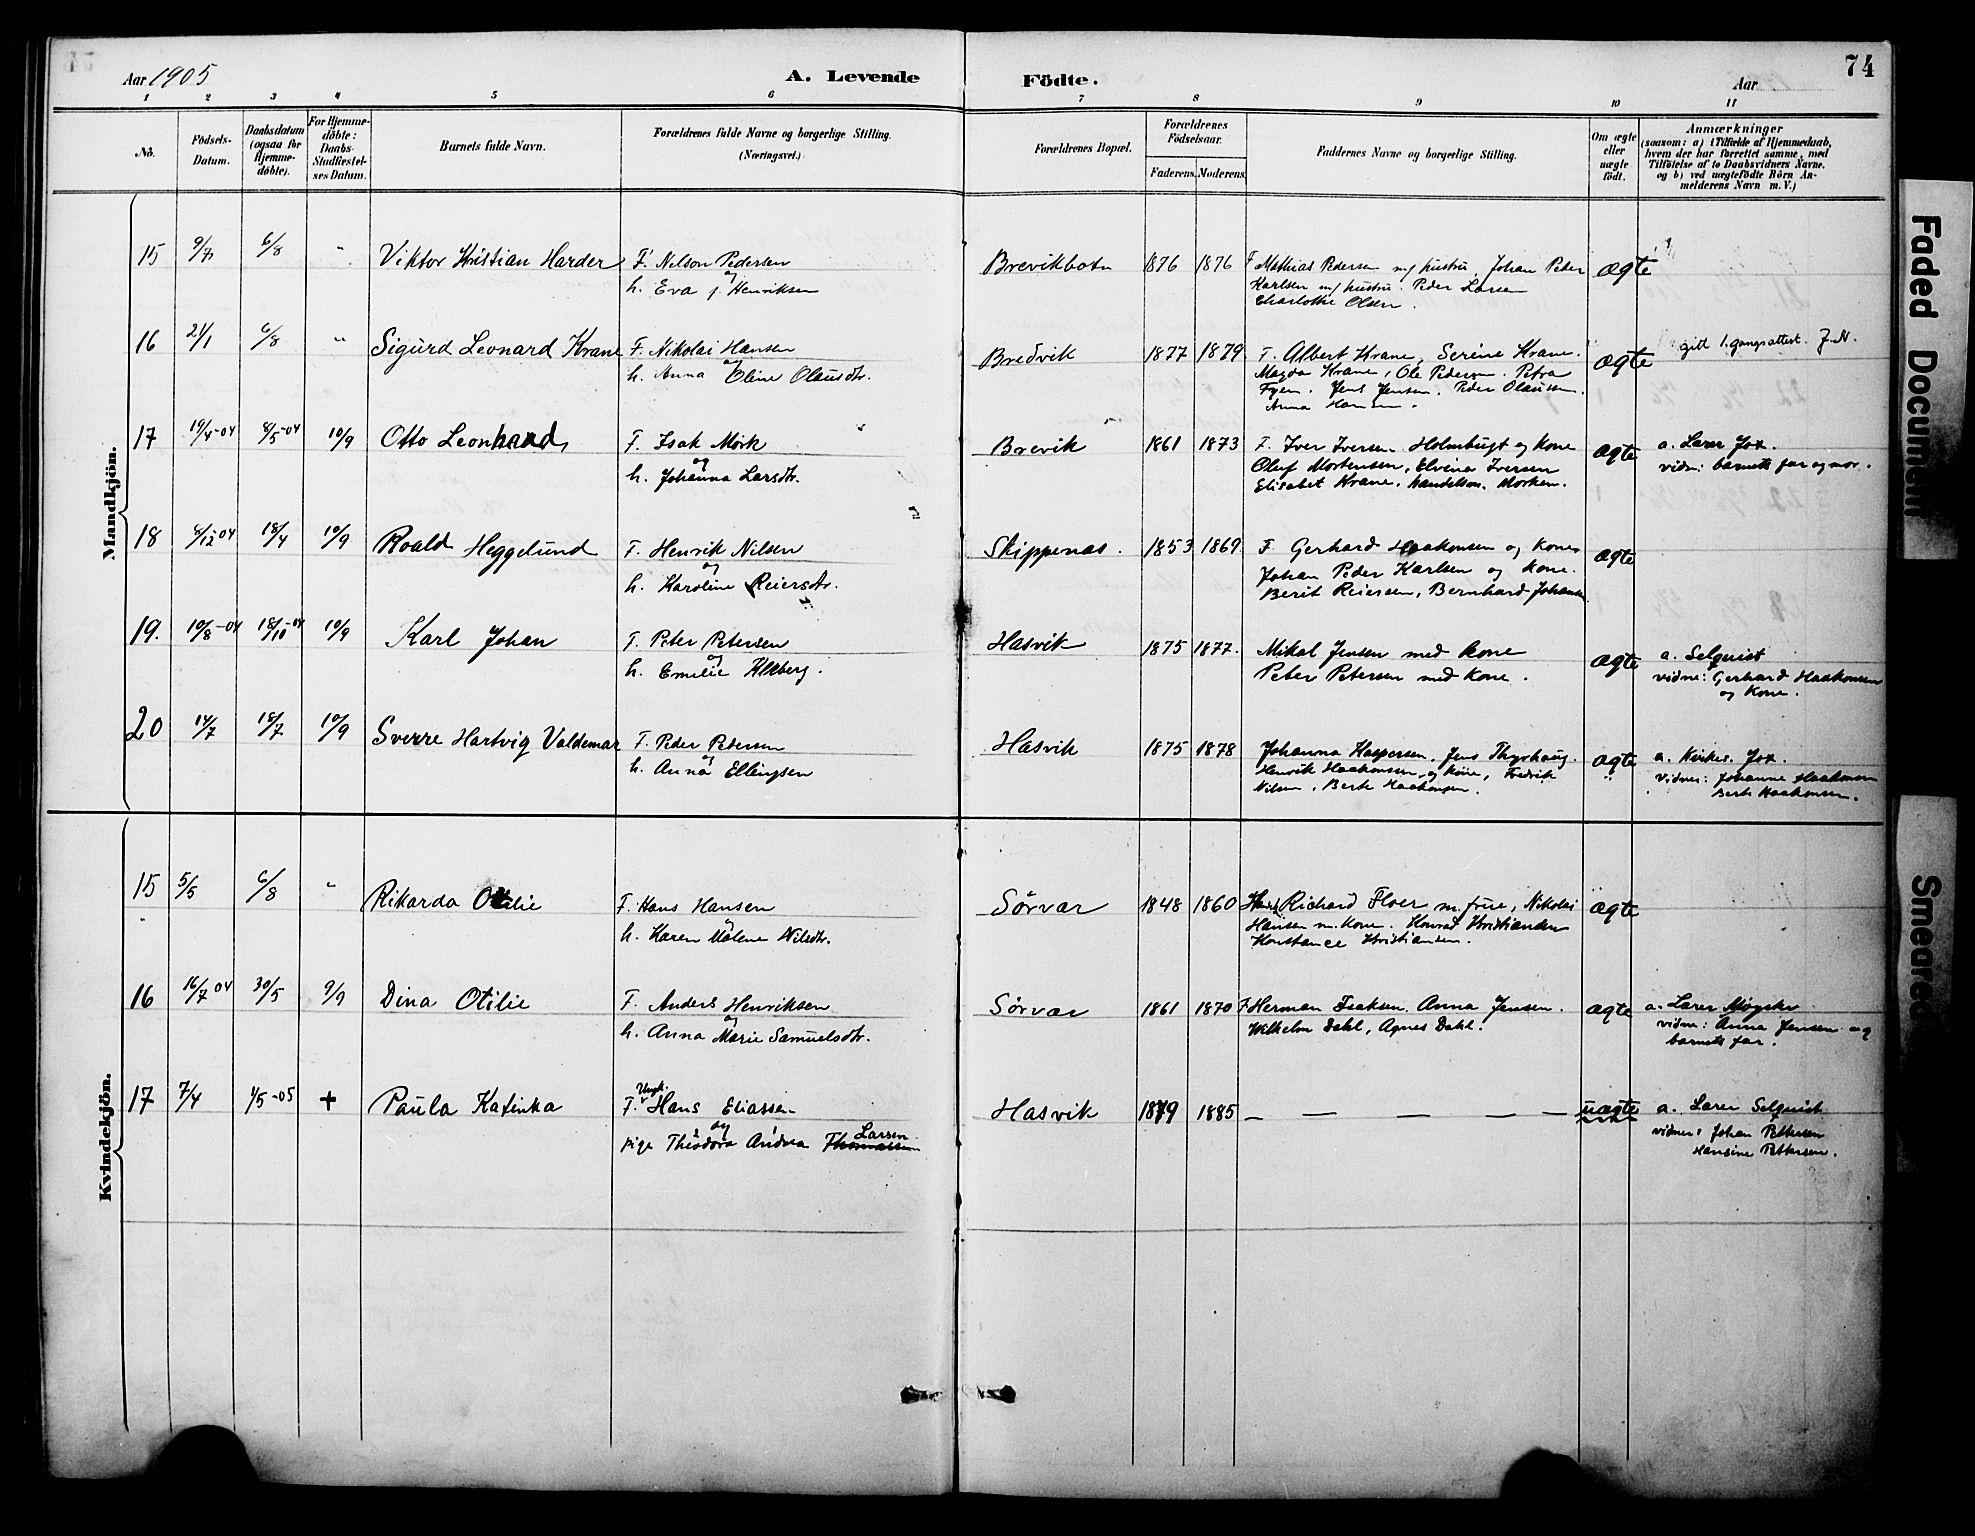 74
Aar 1905
A. Levende
Födte.
Aar
1 2 3 4 5 6 7 8 9 10 11
No.
Födsels-Datum.
Daabsdatum (ogsaa for Hjemme-døbte).
For Hjemme-døbte: Daabs-Stadfæstel-ses Datum.
Barnets fulde Navn.
Forældrenes fulde Navne og borgerlige Stilling. (Næringsvei.)
Forældrenes Bopæl.
Forældrenes Födselsaar.
Faderens. Moderens.
Faddernes Navne og borgerlige Stilling.
Om ægte eller uægte födt.
Anmærkninger
(saasom: a) i Tilfælde af Hjemmedaab,
hvem der har forrettet samme, med
Tilföielse af to Daabsvidners Navne.
og b) ved uægtefödte Börn An-
melderens Navn m. V.)
Mandkjön.
15 9/7 6/8 " Viktor Kristian Harder F. Nelson Pedersen Brevikbotn 1876 1876 F Mathias Pedersen m/ hustru, Johan Peder ægte
og
h. Eva f. Henriksen Karlsen m/ hustru. Peder Larsen
Charlotte Olsen.
16 21/1 6/8 " Sigurd Leonard Krane F. Nikolai Hansen Bredvik 1877 1879 F. Albert Krane, Serine Krane. ægte gitt 1. gangsattest. J.N.
og
h. Anna Oline Olausdtr. Magda Krane, Ole Pedersen. Petra
Jens Jensen. Peder Olaussen.
Anna Hansen.
17 19/4-04 8/5-04 10/9 Otto Leonhard F. Isak Mørk Brevik 1861 1873 F. Iver Iversen Holmbugt og kone ægte a. Lærer Fox.
og
h. Johanna Larsdtr. Oluf Mortensen, Elvina Iversen vidn: barnets far og mor.
Elisabet Krane, Morken.
18 8/12 04 18/4 10/9 Roald Heggelund F. Henrik Nilsen Skippernæs. 1853 1869 F. Gerhard Haakonsen og Kone ægte
og
h. Karoline Reiersdtr. Johan Peder Karlsen og kone.
Berit Reiersen, Bernhard Johansen
19. 10/8-04 18/10-04 10/9 Karl Johan F. Peter Petersen Hasvik 1875 1877. Mikal Jensen med kone ægte a. Selquist
og
h. Emelie Peter Petersen med kone. vidne: Gerhard Haakonsen
og Kone.
20 14/7 18/7 10/9 Sverre Hartvig Valdemar F. Peder Pedersen Hasvik 1875 1878 Johanna Kaspersen, Jens Thyrhaug. ægte a. Kirkes. Fox.
og
h. Anna Ellingsen Henrik Haakonsen og kone, Fredrik vidner: Johanne Haakonsen
Nilsen, Berte Haakonsen. Berte Haakonsen.
Kvindekjön.
15 5/5 6/8 " Rikarda Otilie F. Hans Hansen Sørvær 1848 1860 Richard Floer m. frue, Nikolai ægte
og
h. Karen Malene Nilsdtr. Hansen m. kone. Konrad Kristiansen
Konstance Kristiansen.
16 16/7 04 30/5 9/9 Dina Otilie F. Anders Henriksen Sørvær 1861 1870 F Herman Isaksen, Anna Jensen. ægte a. Lærer
og
h. Anna Marie Samuelsdtr. Wilhelm Dahl, Agnes Dahl. vidne: Anna Jensen og
barnets far.
17 7/4 1/5-05 + Paula Katinka F. Ungk. Hans Eliassen Hasvik 1879 1885 — — — — — uægte a. Lærer Selquist
og
pige Theodora Andrea Thomassen Larsen vidner: Johan Pettersen
Hansine Pettersen.
Faded Document
Smeared